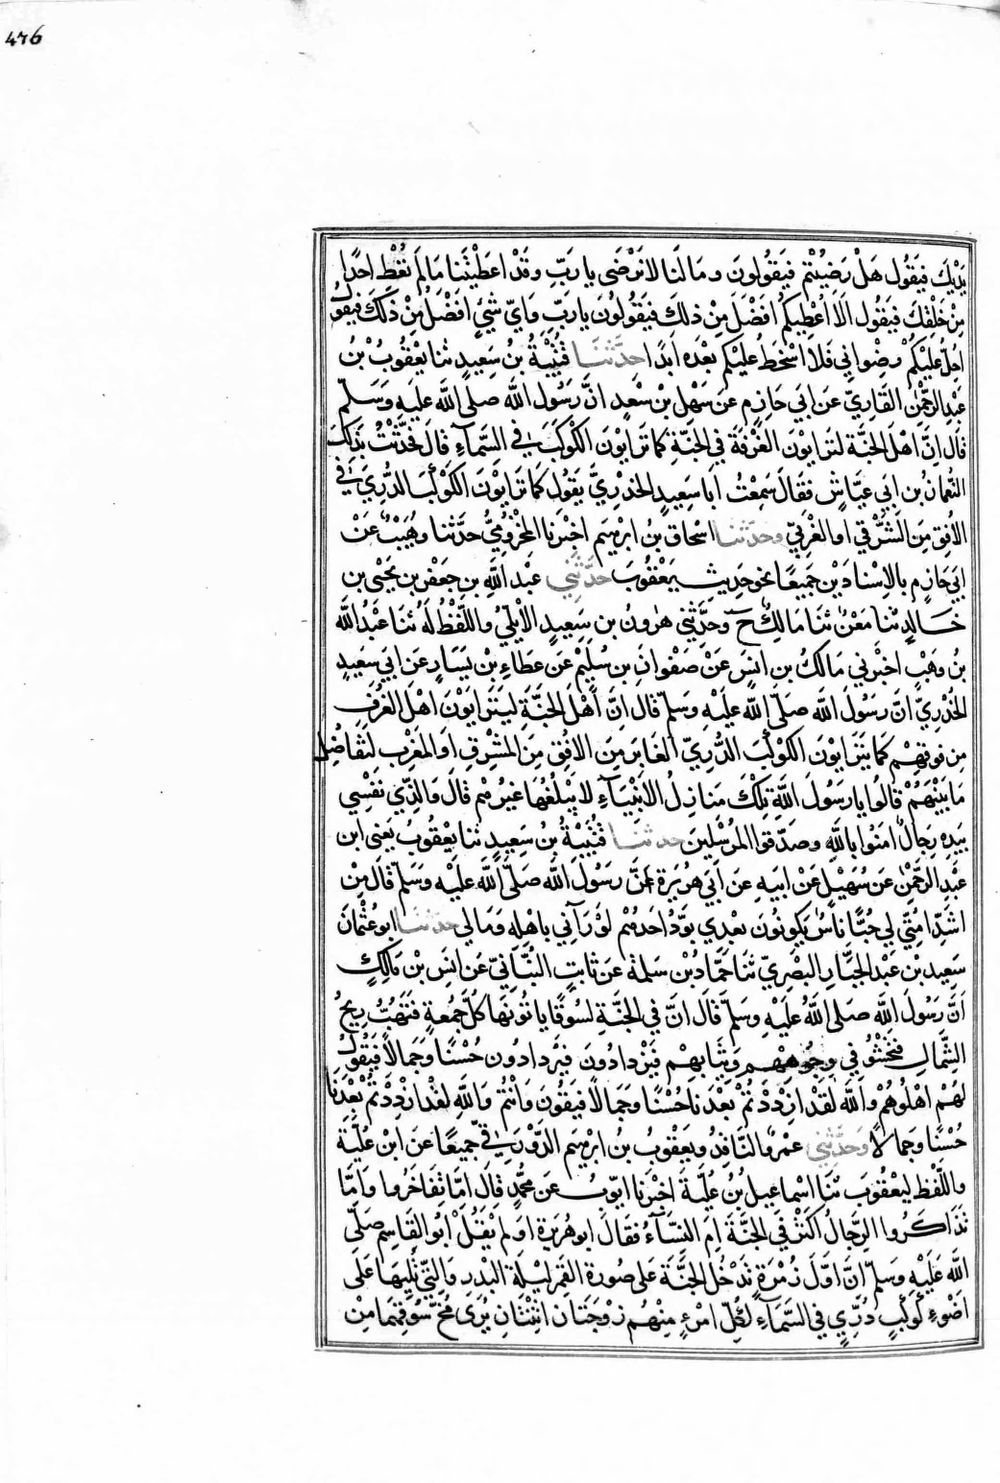 476
يَدَيْكَ فيَقُول هَلْ رَضِيْتُم فَيَقُولونَ وَمَا لَنَا لا نَرْضَى يا ربِّ وقَدْ اعطَيْتَنا مَا لَم تُعْطِ احدًا
مِنْ خَلْقِكَ فَيَقُول أَلَا أُعطِيكُم افضَلَ مِنْ ذلِكَ فَيَقُولُونَ يَا ربِّ وَايّ شَيْءٍ افضَلُ مِنْ ذَلِكَ فيقُولُ
اُحِلّ عَلَيْكُم رضْوانِي فَلَا اَسْخَطُ عَلَيْكُم بَعْدَه ابدًا حدّثنا قُتَيْبَةُ بنُ سَعِيدٍ ثنا يعْقُوبُ بْنُ
عَبْدِ الرَّحْمنِ القَارِيّ عَنْ ابي حَازِم عَن سَهْلِ بْن سَعْدٍ انَّ رَسُول الله صلى الله عَلَيه وَسَلّم
قال اِنَّ اهْلَ الجَنَّة لتَرَايَوْن الغُرْفَة في الجنَّةِ كما تَرَايَوْن الكَوكَبَ في السَّمآءِ قالَ فَحَدَّثْتُ بذلِكَ
النُّعمانَ بن ابي عيَّاشٍ فَقالَ سَمِعْتُ ابَا سَعِيدٍ الخدْرِيَّ يَقُول كَمَا تَرايَوْنَ الكَوْكَبَ الدُّرِيَّ في
الأفقِ مِنَ الشَّرْقيّ اوالغَرْبيّ وحدّثنا اسْحاق بنُ ابرهيم اخبَرنا المخْزُومِيُّ حدّثنا وُهَيْبٌ عَنْ
ابي حَازِم بالإسْنادَيْن جَمِيعًا نحو حَدِيثِ يَعْقُوبَ حدّثني عبْد اللهِ بن جَعْفَر بن يَحْيَى بن
خَالِدٍ ثنا مَعْنٌ ثنا مَالِكٌ ح وحدَّثني هرُون بن سعِيدٍ الأيْلِيّ واللّفْظُ لَهُ ثنا عَبْدُ الله
بنُ وَهْبٍ اخبَرَني مَالكُ بن انَسٍ عَنْ صَفْوان بن سُلَيْم عَن عَطَاءِ بْن يَسَارٍ عَن ابي سَعِيدٍ
الخُدْرِيّ انَّ رسُولَ الله صَلّى الله عَلَيْه وَسلّم قال انَّ أهْلَ الجَنَّةِ ليَتَرَايَوْنَ اهْلَ الغُرَفِ
مِن فوقِهِمْ كَمَا يَتَرَايَوْن الكَوْكَبَ الدُّرِيّ الغَابِرَ مِنَ الافُقِ مِنَ المشْرِقِ اَو المَغْرِب لتفَاضُلِ
مَا بَيْنَهُمْ قالُوا يا رَسُولَ اللهِ تِلْكَ مَنازِلُ الانْبِيَآءِ لا يَبْلُغُهَا غَيرُهُم قالَ وَالذّي نَفْسِي
بيَدِه رِجَالٌ امَنُوا باللهِ وصَدّقوا المُرْسَلِينَ حدثنا قُتَيْبَةُ بنُ سَعِيدٍ ثنا يعْقُوب يَعْنى ابن
عَبْدِ الرَّحْمنِ عَن سُهَيْلٍ عَنْ ابيهِ عَن أبي هُرَيرَة أنَّ رَسُول الله صَلّى الله عَلَيْه وَسَلّم قالَ مِنْ
اشَدّ امّتي لي حُبًّا ناسٌ يَكُونُونَ بَعْدِي يوَدُّ احَدُهُمْ لوْ رَآني باهْلِهِ وَمَالي حدّثنا ابُو عُثْمانَ
سَعِيد بن عَبْد الجَبَّارِ البَصْرِيّ ثنا حَمَّادُ بْن سَلَمة عَن ثابتٍ البُنَانِيّ عَن انَسِ بْن مالِكٍ
اَنَّ رَسُولَ الله صَلى الله عَلَيْهِ وَسَلّمَ قَالَ انَّ في الجنَّةِ لسُوقًا ياتُونَهَا كُلّ جُمُعةٍ فتَهُبُّ رِيحُ
الشَّمَالِ فتَحْثُو في وجُوهِهِم وثيَابهم فيَزْدَادُونَ فيزدادُون حُسْنًا وَجَمَالاً فَيَقُولُ
لهُمْ اهْلُوهُمْ وَالله لَقَدْ ازْدَدْتُمْ بَعْدَنا حُسْنًا وَجَمَالاً فيَقُون وَانْتُم وَاللهِ لقَدْ ازْدَدْتُمْ بَعْدَنَا
حُسْنًا وَجمالاً وَحَدّثني عَمْرٌو النَّاقِدُ ويَعْقُوبُ بن ابرهِيم الدَّوْرَقيّ جَمِيعًا عَن ابْن عُلَيَّةَ
واللّفْظ ليعْقُوبَ ثنَا اسْماعِيل بنُ عُلَيَّة اخْبَرنا ايّوبُ عَن محمّدٍ قال امَّا تفَاخَرُوا وَامَّا
تذَاكَرُوا الرِّجَالُ اكثَرُ في الجَنَّةِ امِ النِّسآءُ فقَالَ ابو هُرَيرَة اوَلم يَقُلْ ابُو القَاسِم صَلّى
الله عَلَيْه وَسَلّم انَّ اوّلَ زُمْرَةٍ تَدْخُلُ الجَنَّةَ علَى صُورة القَمرِ ليْلَة البْدرِ وَالتّي تَلِيهَا علَى
اَضْوءِ كَوكَبٍ دُرّيٍ في السّمَآءِ لكُلّ امْرِءٍ مِنْهُم زوْجَتان اثْنَتَان يُرَى مُخُّ سُوقِهِمَا مِنْ